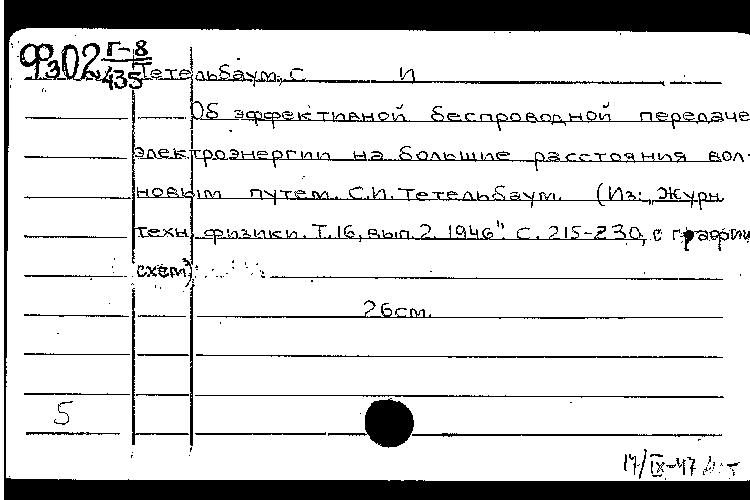 Фэ02 Г-8
435
Тетельбаум, С И
Об эффективной беспроводной передаче
электроэнергии на большие расстояния вол-
новым путем. С.И. Тетельбаум. (Из: „Журн
техн. физики. Т.16, вып.2 1946". С. 215-230, с графи
схем)
26см.
5
17/IX-47